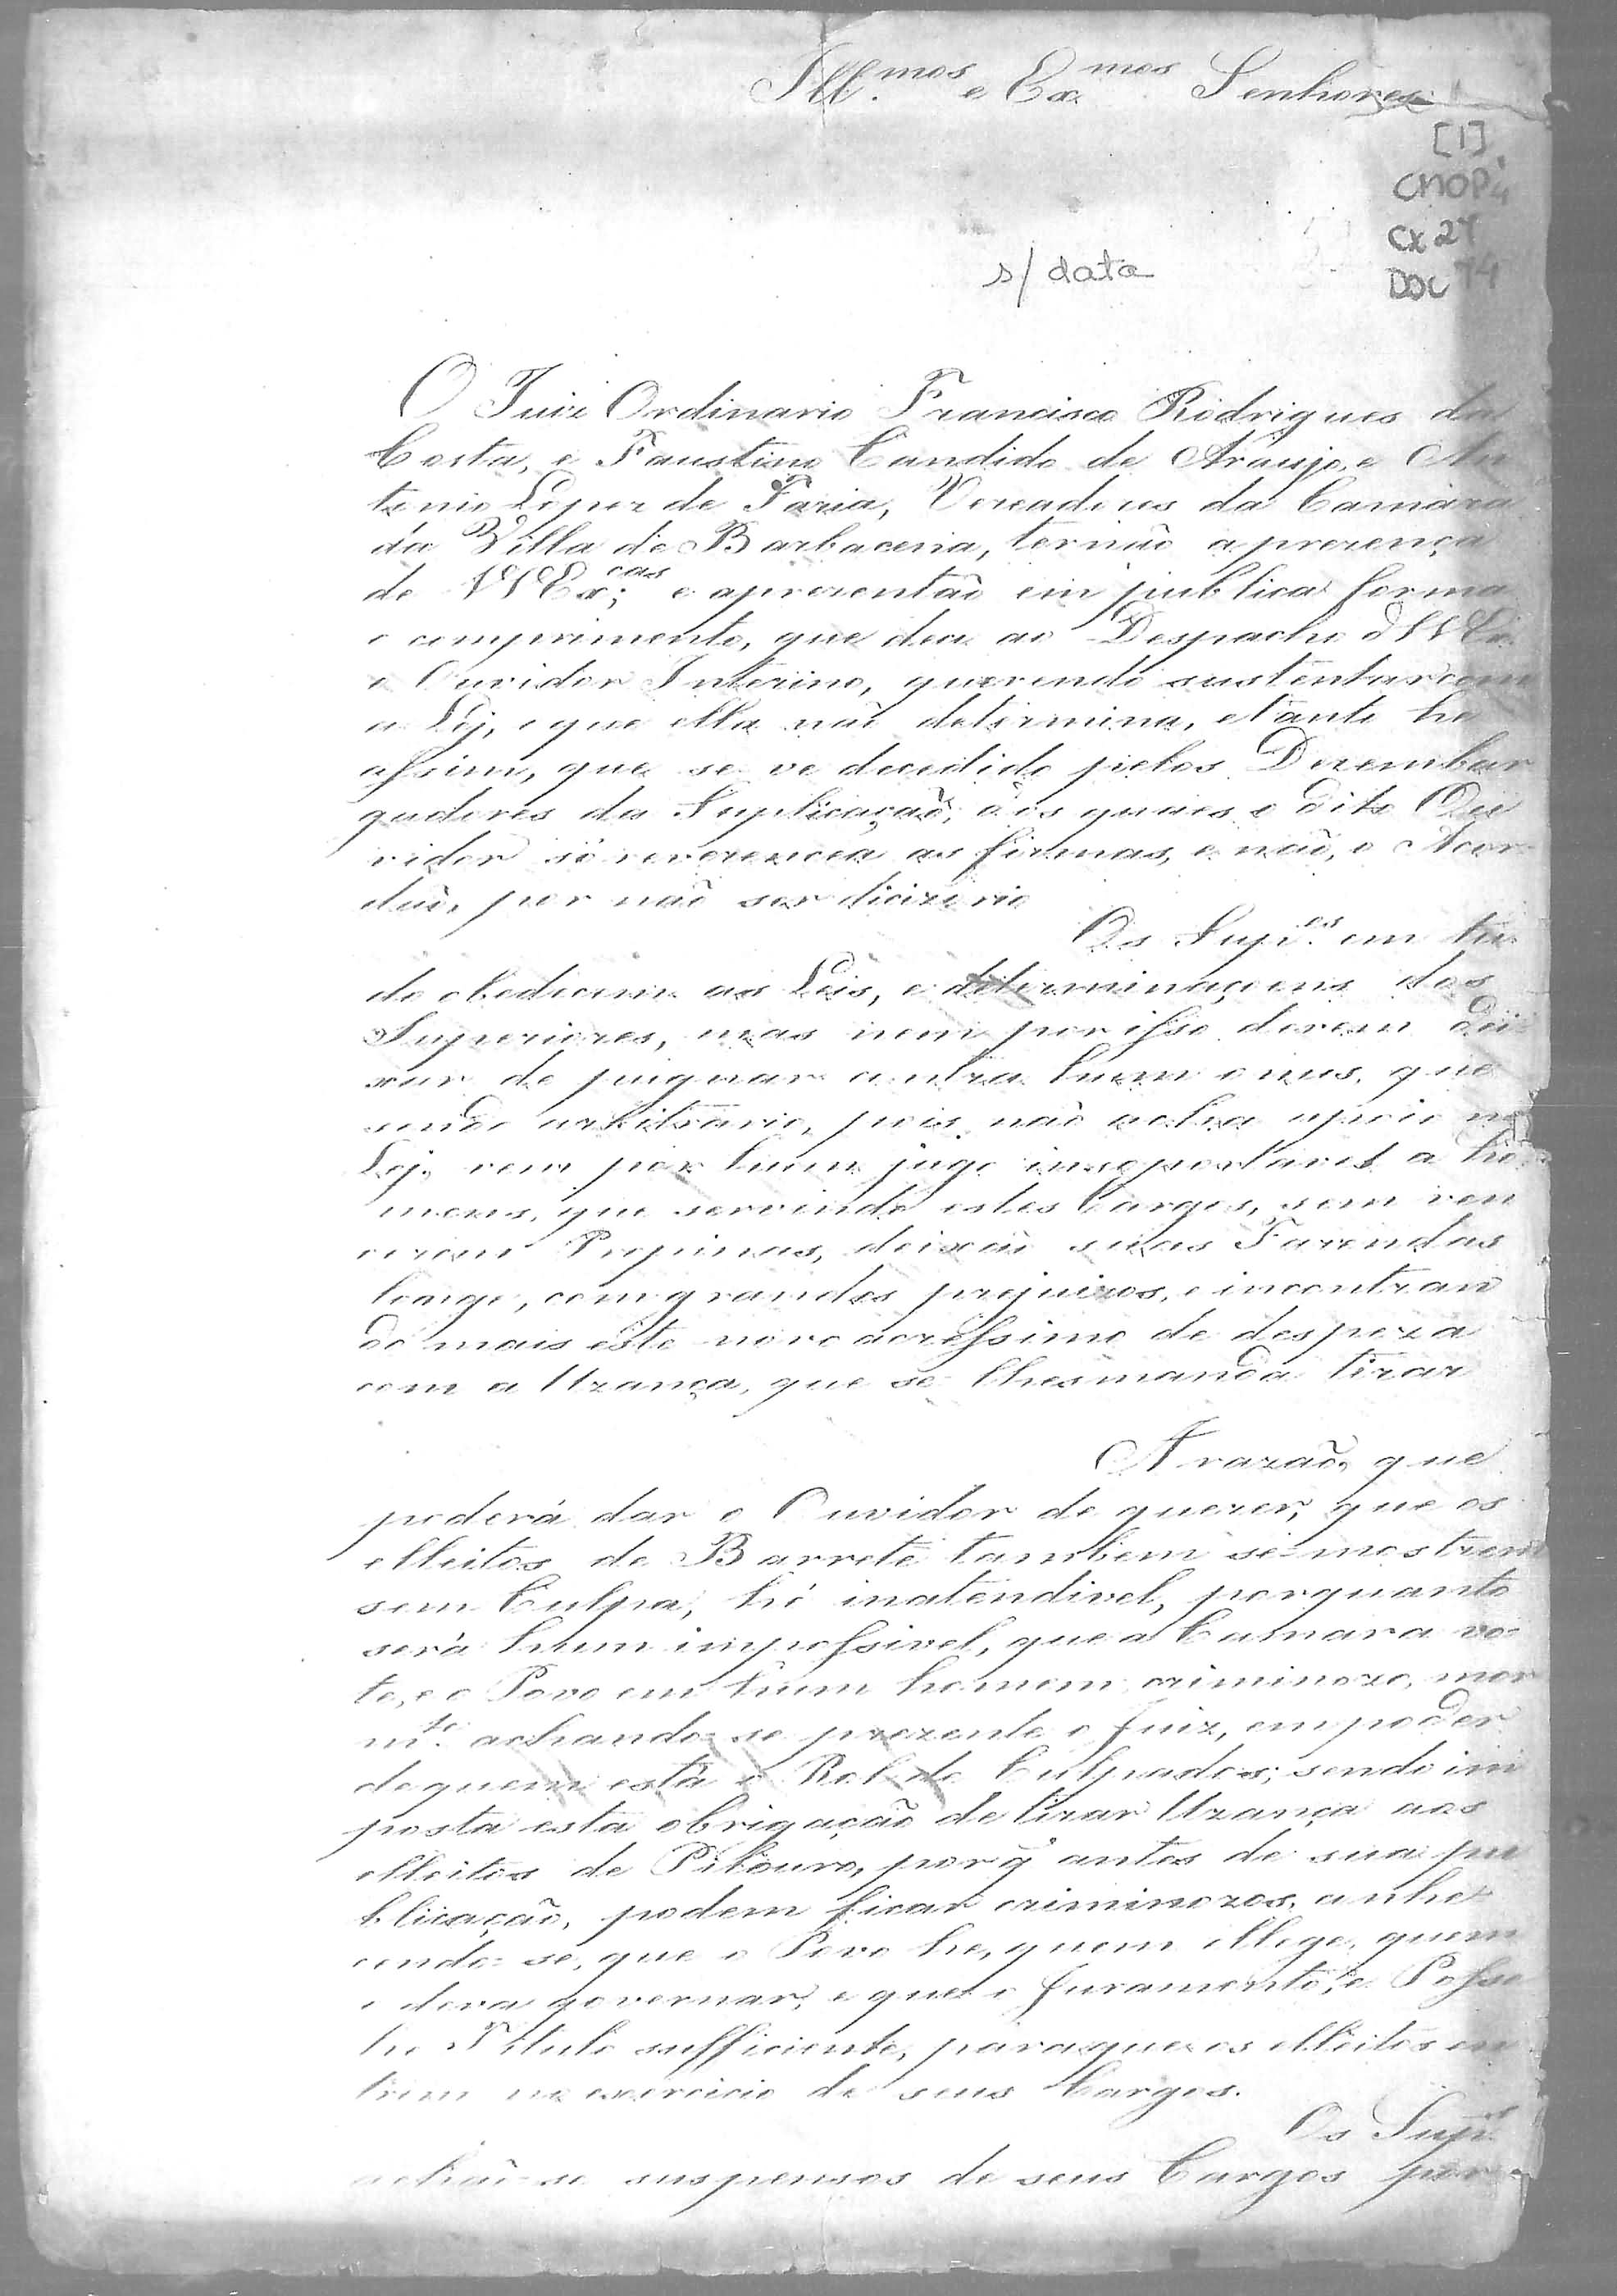 Ill.mos e Ex.mos Senhores
[1]
CMOP
Cx 27
DOC 74
s/ data
O Juiz Ordinario Francisco Rodrigues da
Costa, e Faustino Candido de Araujo, e An
tonio Lopez de Faria, Vereadores da Camara
da Villa de Barbacena, tornão a prezença
de VVEx.cas; e aprezentão em publica forma
o comprimento, que deu ao Despacho d VVEx.
o Ouvidor Interino, querendo sustentar com
a Ley, o que ella não determina, e tanto he
assim, que se ve decedido pelos Dezembar
gadores da Suplicação, aos quaes o dito Ou
vidor só reverencea as firmas, e não, o Acor
dão, por não ser dicizorio
Os Sup.es em tu
do obedecem as Leis, e determinaçoens dos
Superiores, mas nem por isso devem dei
xar de pugnar contra hum onus, que
sendo arbitrario, pois não acha apoio na
Ley, vem por hum jugo insoportavel a ho
mens, que servindo estes Cargos, sem ven
cerem Propinas, deixão suas Fazendas
longe, com grandes prejuizos, e incontran
do mais este novo acressimo de despeza
com a Uzança, que se lhes manda tirar
A razão, que
poderá dar o Ouvidor de querer, que os
elleitos de Barrete tambem se mostrem
sem Culpa, hé inatendivel, porquanto
será hum impossivel, que a Camara vo-
te, e o Povo em hum homem criminozo, mor
m.te achando-se prezente o Juiz, em poder
de quem está o Rol de Culpados; sendo im
posta esta obrigação de tirar Uzança aos
elleitos de Pilouro, porq̃ antes de sua pu
blicação, podem ficar criminozos, conhe-
cendo-se, que o Povo he, quem ellege, quem
o deva governar, e que o Juramento, e Posse
he Titulo sufficiente, para que os elleitos en
trem no exercicio de seus Cargos.
Os Sup.es
achão-se suspensos de seus Cargos por